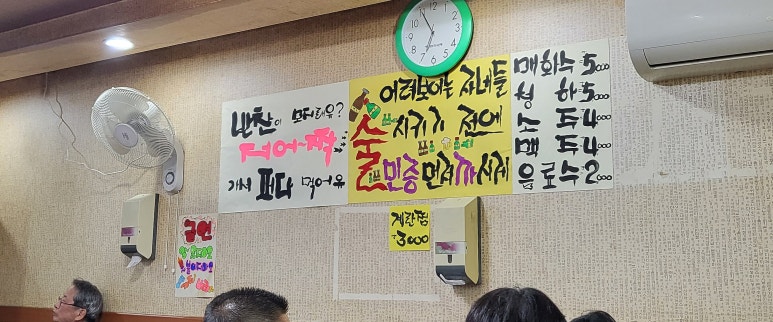 반찬이 모지래유?
저어~짝
가서 퍼다 먹어유
어려보이는 자네들
술 시키기 전에
민증 먼저 까시게
매화수 5000
청하 5000
소주 4000
맥주 4000
음료수 2000
계란찜
3000